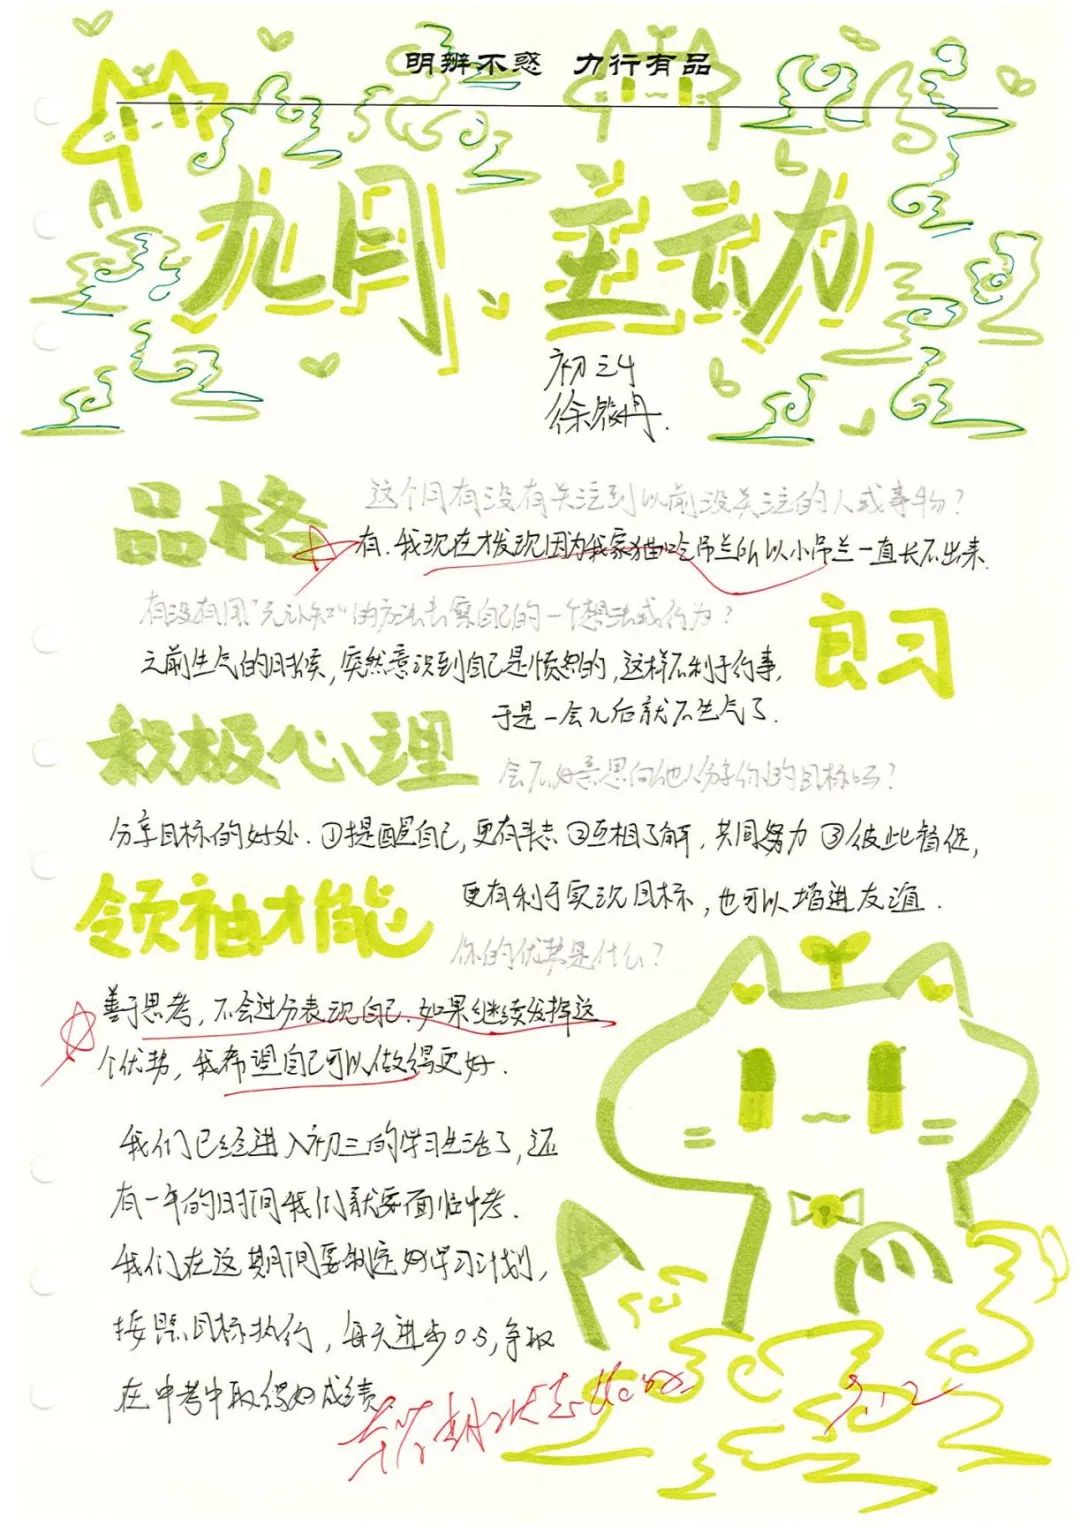 明辨不惑 力行有品
九月 主动
初三4
徐
品格
这个月有没有关注到以前没关注的人或事物？
有.我现在才发现因为我家猫吃吊兰所以小吊兰一直长不出来.
有没有用"元认知"的方法去察自己的一个想法或行为？
良习
之前生气的时候,突然意识到自己是愤怒的,这样不利于行事,
于是一会儿后就不生气了.
积极心理
会不好意思向他人分享你的目标吗？
分享目标的好处.①提醒自己,更有斗志②互相了解,共同努力③彼此督促,
更有利于实现目标,也可以增进友谊.
领袖才能
你的优势是什么？
善于思考,不会过分表现自己.如果继续发挥这
个优势,我希望自己可以做得更好.
我们已经进入初三的学习生活了,还
有一年的时间我们就要面临中考.
我们在这期间要制定好学习计划,
按照目标执行,每天进步0.5,争取
在中考中取得好成绩